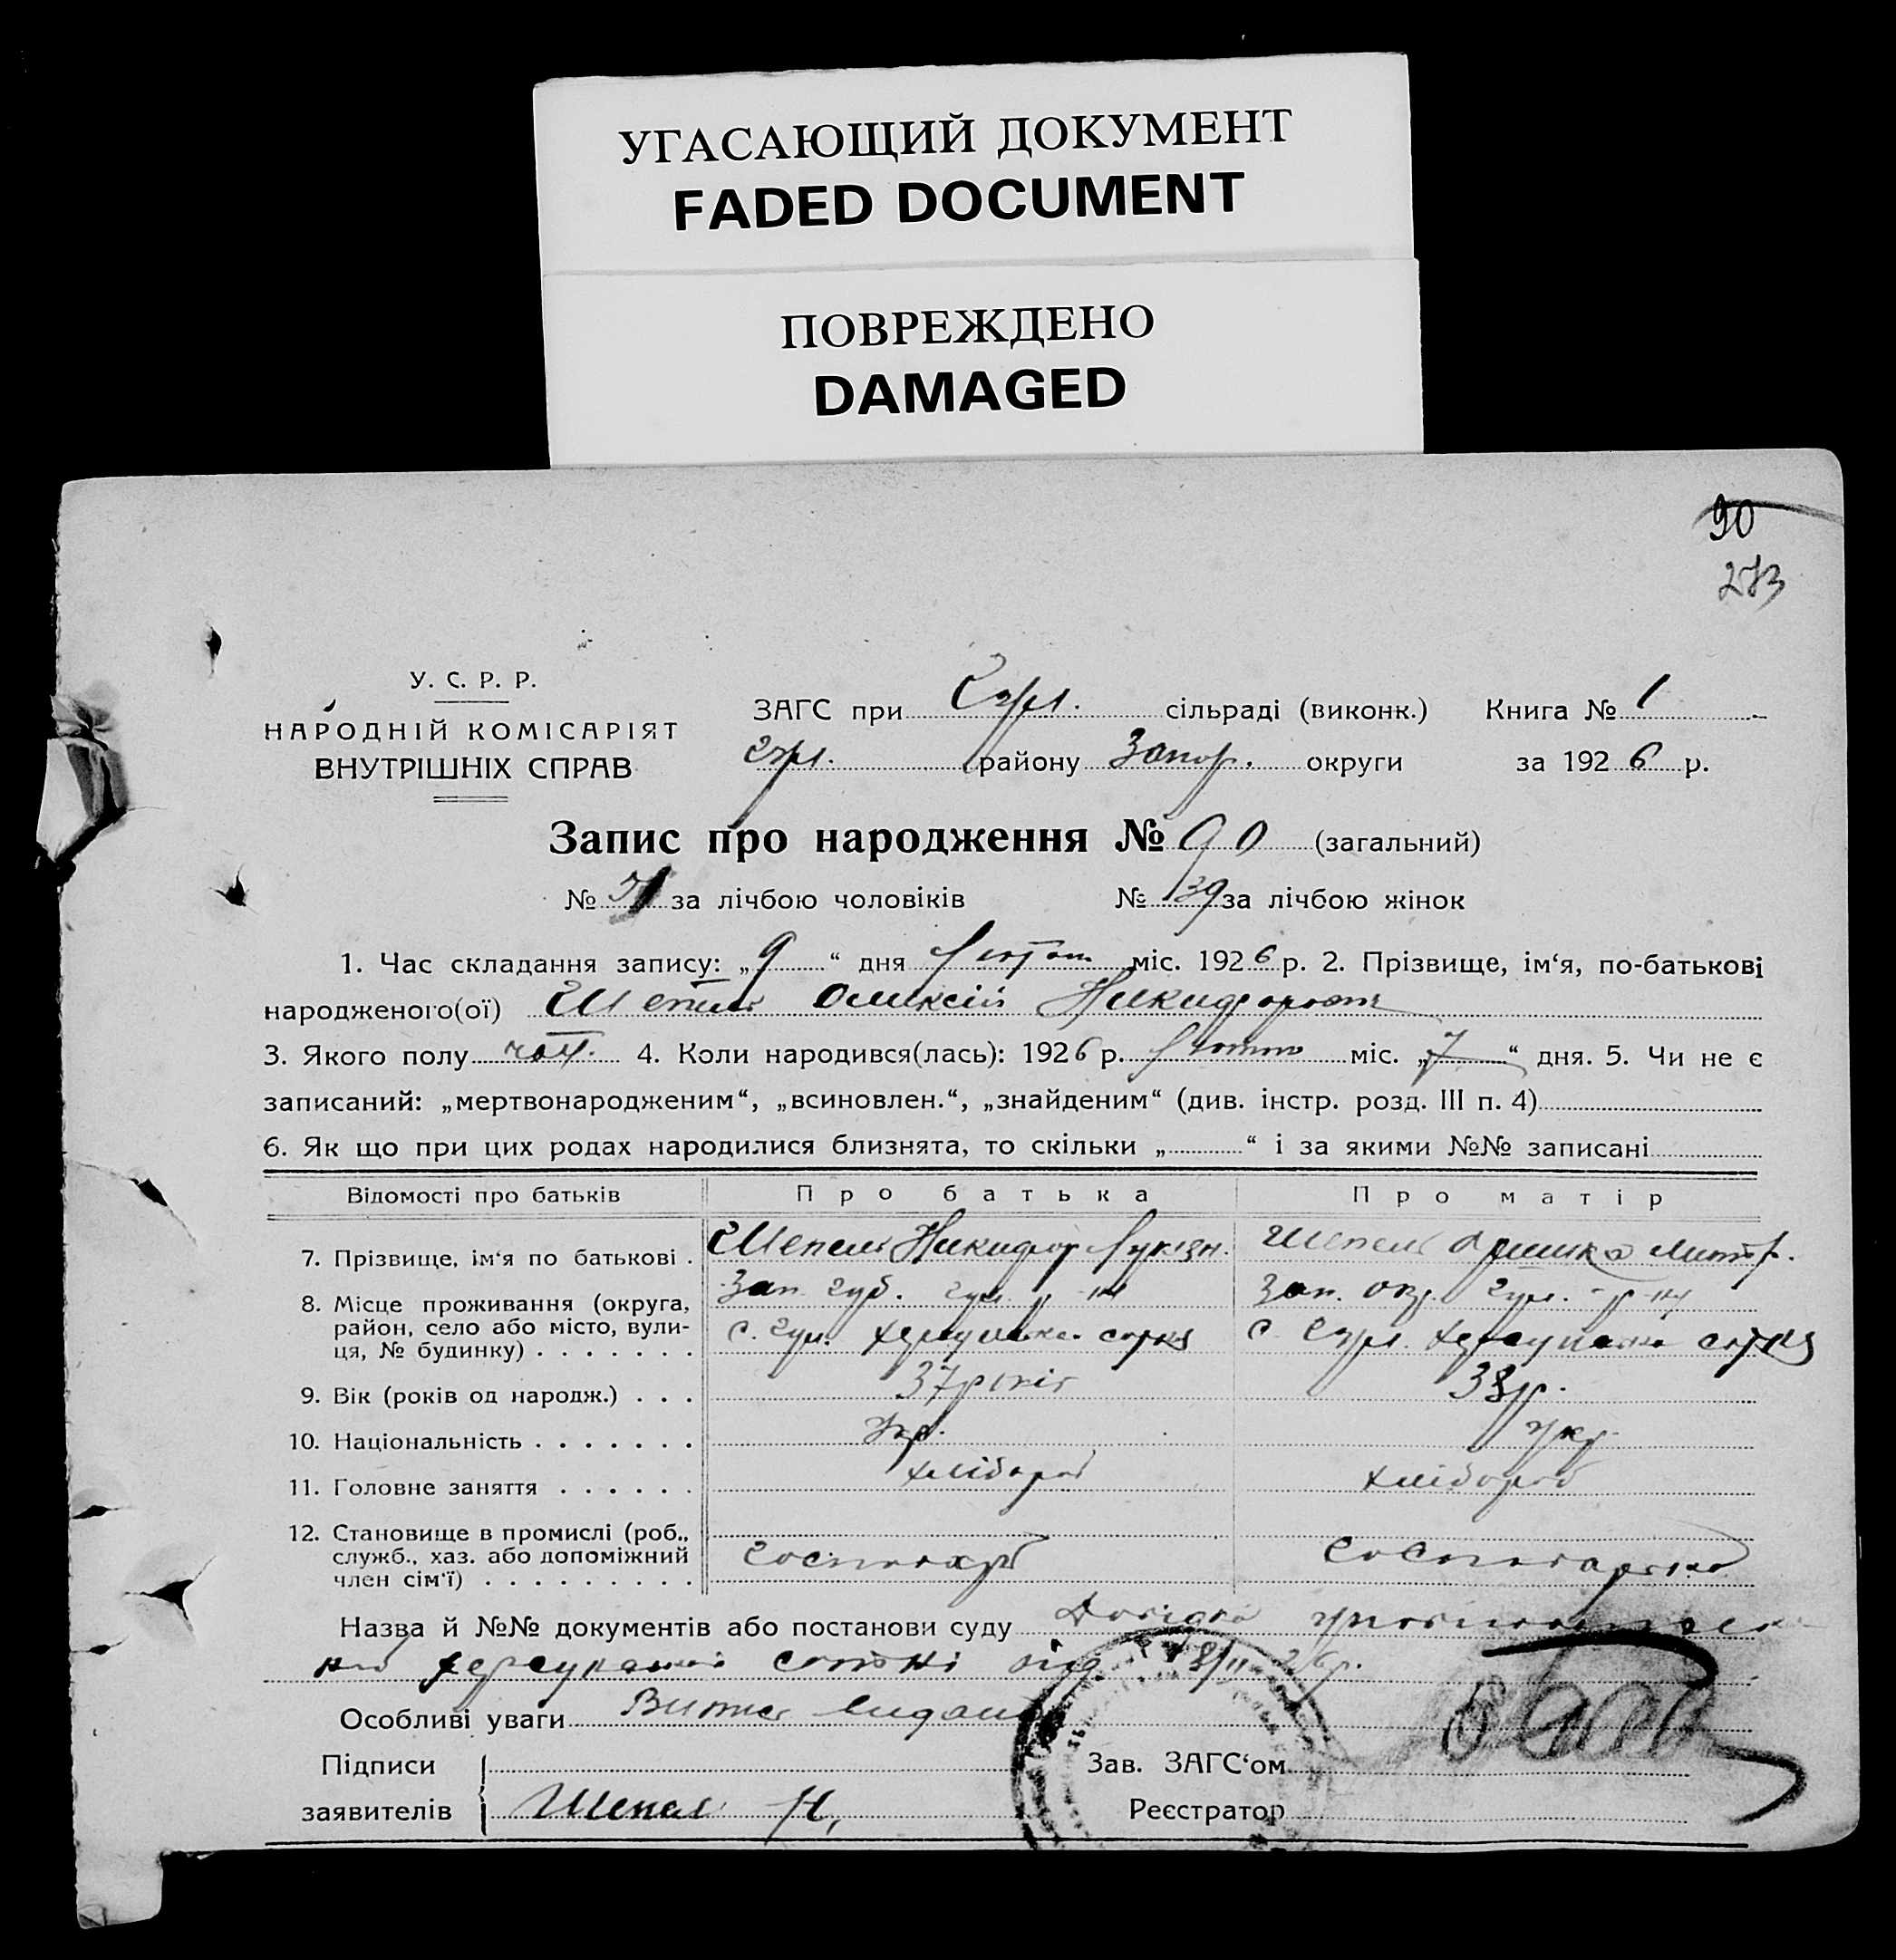 УГАСАЮЩИЙ ДОКУМЕНТ
FADED DOCUMENT
ПОВРЕЖДЕНО
DAMAGED
90
273
У. С. Р. Р.
НАРОДНІЙ КОМІСАРІЯТ
ВНУТРІШНІХ СПРАВ
ЗАГС при Гул. сільраді (виконк.) Книга № 1
Гул. району Запор. округи за 1926 р.
Запис про народження № 90 (загальний)
№ 51 за лічбою чоловіків № 39 за лічбою жінок
1. Час складання запису: „9“ дня лютого міс. 1926 р. 2. Прізвище, ім‘я, по-батькові
народженого(ої) Шепель Оликсій Никифоров
3. Якого полу чол. 4. Коли народився(лась): 1926 р. лютого міс. „7“ дня. 5. Чи не є
записаний: „мертвонародженим“, „всиновлен.“, „знайденим“ (див. інстр. розд. III п. 4)
6. Як що при цих родах народилися близнята, то скільки „ “ і за якими №№ записані
Відомості про батьків Про батька Про матір
7. Прізвище, ім‘я по батькові . Шепель Никифор Лукян. Шепель Аришка Митр.
8. Місце проживання (округа, район, село або місто, вулиця, № будинку) Зап. губ. Гул. р-ну Зап. окр. Гул. р-ну
с. Гул. сотня с. Гул. сотня
9. Вік (років од народж.) . . . 37 років 38 р.
10. Національність . . . . . . . Укр. Укр.
11. Головне заняття . . . . . . хлібороб хлібороб
12. Становище в промислі (роб., служб., хаз. або допоміжний член сім‘ї) . . . . . . . . .
Назва й №№ документів або постанови суду Довідка
сотні від 8/II 26 р.
Особливі уваги Витяг видано
Підписи Зав. ЗАГС‘ом
заявителів Шепель Н. Реєстратор